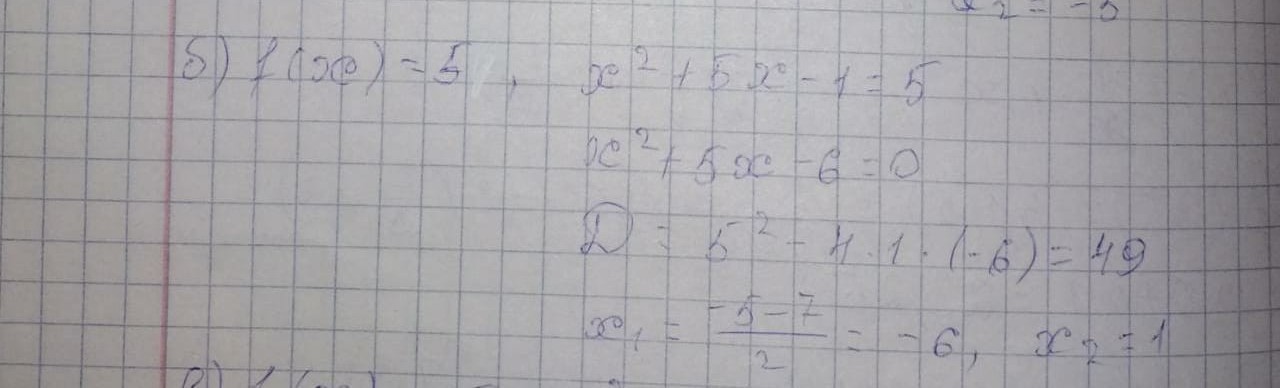 x₂ = -5
б) f(x) = 5, x² + 5x - 1 = 5
x² + 5x - 6 = 0
D = 5² - 4 · 1 · (-6) = 49
x₁ = (-5 - 7)/2 = -6, x₂ = 1